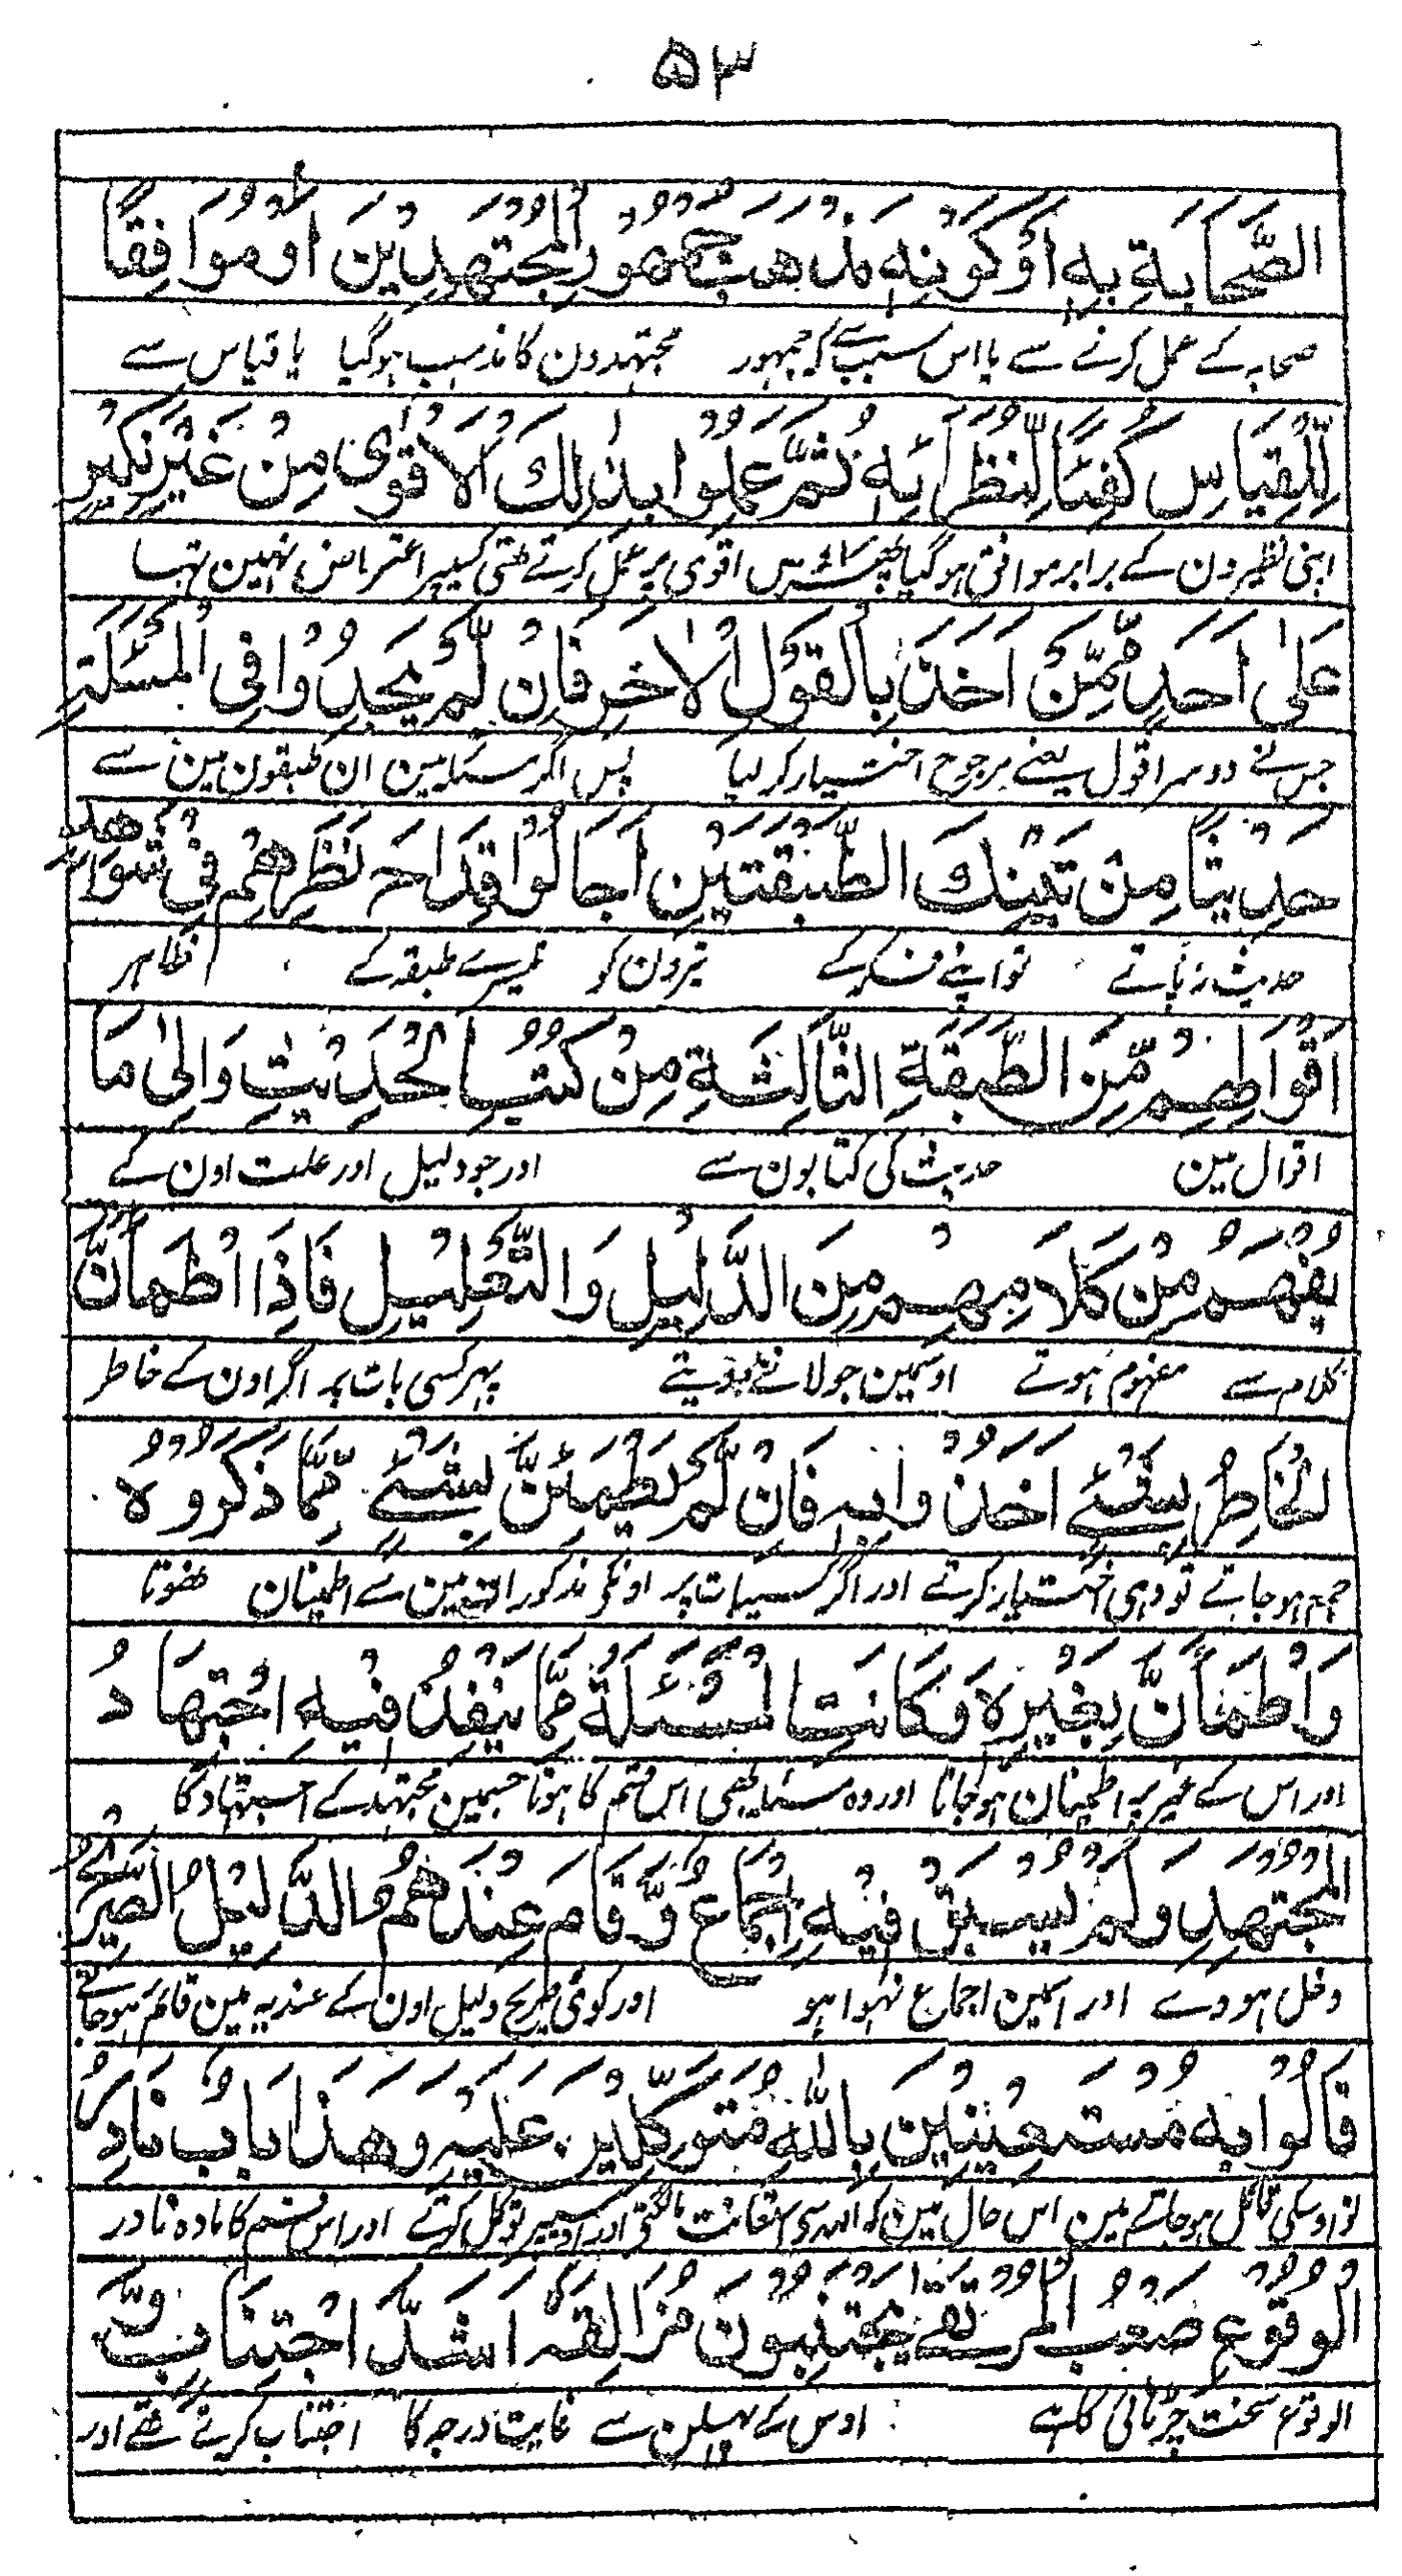 ۵۳
الصَّحَابَةِ بِهِ اَوْ كَوْنِهِ مَذْهَبَ جُمْهُوْرِ الْمُجْتَهِدِيْنَ اَوْ مُوَافِقًا
صحابہ کے عمل کرنے سے یا اس سبب سے کہ جمہور مجتہدون کا مذہب ہوگیا یا قیاس سے
لِّلْقِيَاسِ كُفْئًا لِّنُظَرَائِهِ ثُمَّ عَمِلُوْا بِذٰلِكَ الْاَقْوٰى مِنْ غَيْرِ نَكِيْرٍ
اپنی نظیرون کے برابر موافق ہوگیا پھر اس اقوی پر عمل کرتے تھی کسیپر اعتراض نہین تہا
عَلٰى اَحَدٍ مِّمَّنْ اَخَذَ بِالْقَوْلِ الْاٰخَرِ فَاِنْ لَّمْ يَجِدُوْا فِى الْمَسْئَلَةِ
جس نے دوسرا قول یعنے مرجوح اختیار کر لیا پس اگر مسئلہ مین ان طبقون مین سے
حَدِيْثًا مِنْ تَيْنِكَ الطَّبَقَتَيْنِ اَجَالُوْا قِدَاحَ نَظَرِهِمْ فِىْ شَوَاهِدِ
حدیث نہ پاتے تو اپنے فکر کے تیرون کو تیسرے طبقہ کے ظاہر
اَقْوَالِهِمْ مِّنَ الطَّبَقَةِ الثَّالِثَةِ مِنْ كُتُبِ الْحَدِيْثِ وَاِلٰى مَا
اقوال مین حدیث کی کتابون سے اور جو دلیل اور علت اون کے
يُفْهَمُ مِنْ كَلَامِهِمْ مِنَ الدَّلِيْلِ وَالتَّعْلِيْلِ فَاِذَا اطْمَاَنَّ
کلام سے مفہوم ہوتے اوسمین جولانے دیتے پہر کسی بات پر اگر اون کے خاطر
الْخَاطِرُ بِشَيْئٍ اَخَذُوْا بِهِ فَاِنْ لَّمْ يَطْمَئِنَّ بِشَيْئٍ مِّمَّا ذَكَرُوْهُ
جمع ہو جاتے تو وہی اختیار کرتے اور اگر کسیبات پر اونکی مذکورات مین سے اطمینان نہوتا
وَاطْمَاَنَّ بِغَيْرِهِ وَكَانَتِ الْمَسْئَلَةُ مِمَّا يَنْفُذُ فِيْهِ اجْتِهَادُ
اور اس کے غیر پر اطمینان ہو جاتا اور وہ مسئلہ بھی اس قسم کا ہوتا جسمین مجتہد کے اجتہاد کا
الْمُجْتَهِدِ وَلَمْ يَسْبِقْ فِيْهِ اِجْمَاعٌ وَّقَامَ عِنْدَهُمْ الدَّلِيْلُ الصَّرِيْحُ
دخل ہووے اور اسمین اجماع نہوا ہو اور کوئی صریح دلیل اون کے عندیہ مین قائم ہو جاتے
قَالُوْا بِهِ مُسْتَعِيْنِيْنَ بِاللّٰهِ مُتَوَكِّلِيْنَ عَلَيْهِ وَهٰذَا بَابٌ نَادِرُ
تو اوسکی قائل ہو جاتے ہین اس حال مین کہ اللہ سی استعانت مانگتی اور اوسپر توکل کرتے اور اس قسم کا مادہ نادر
الْوُقُوْعِ صَعْبُ الْمُرْتَقٰى يَجْتَنِبُوْنَ مَزَالِقَهُ اَشَدَّ اجْتِنَابٍ وَّ
الوقوع سخت چڑہائی کا ہے اوس کے پہسلن سے غایت درجہ کا اجتناب کرتے تھے اور